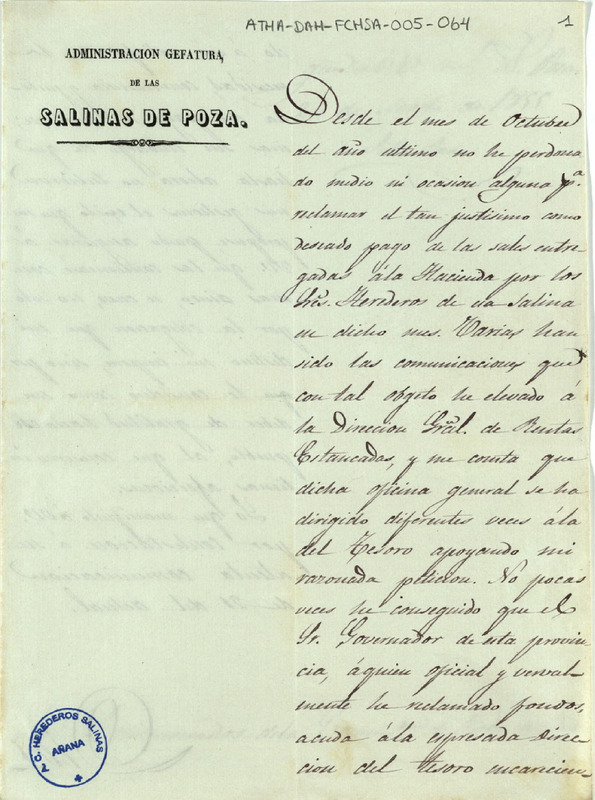 ATHA-DAH-FCHSA-005-064
1
ADMINISTRACION GEFATURA,
DE LAS
SALINAS DE POZA.
Desde el mes de Octubre
del año ultimo no he perdona
do medio ni ocasion alguna pª.
reclamar el tan justisimo como
deseado pago de las sales entre
gadas ála Hacienda por los
Sres. Herederos de esa Salina
en dicho mes. Varias han
sido las comunicaciones que
con tal obgeto he elevado á
la Direccion Gral. de Rentas
Estancadas, y me consta que
dicha oficina general se ha
dirigido diferentes veces ála
del Tesoro apoyando mi
razonada peticion. No pocas
veces he conseguido que el
Sr. Governador de esta provin
cia, áquien oficial y verval-
mente he reclamado fondos,
acuda ála espresada Direc
cion del Tesoro encarecien-
C. HEREDEROS SALINAS
AÑANA